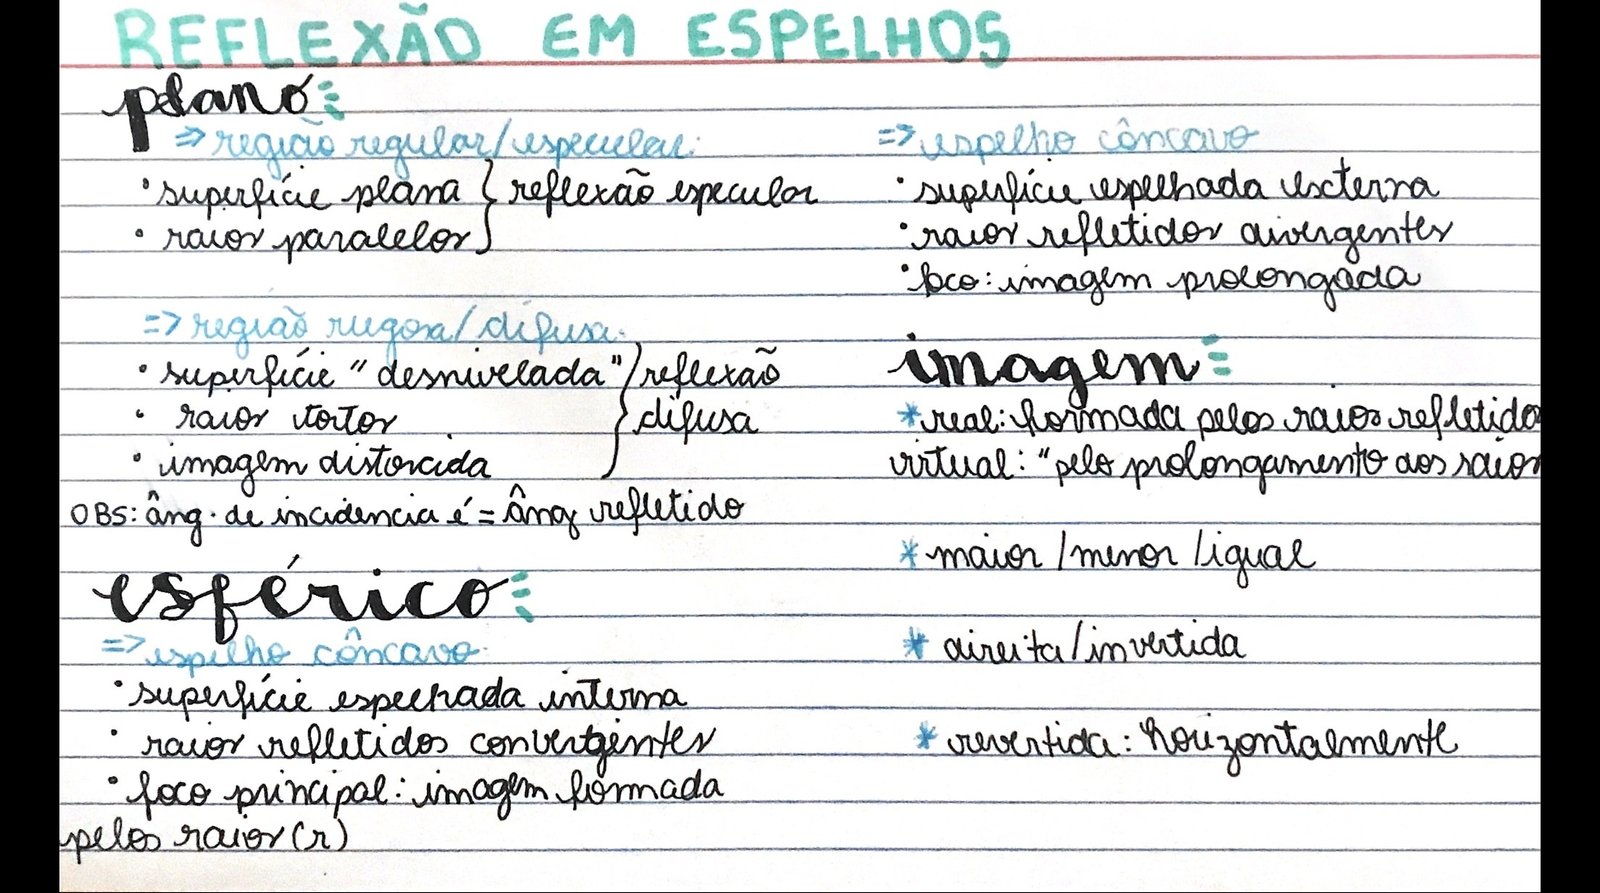 REFLEXÃO EM ESPELHOS
plano
=> região regular/especular:
• superfície plana } reflexão especular
• raios paralelos
=> região rugosa/difusa:
• superfície "desnivelada" } reflexão
• raios tortos difusa
• imagem distorcida
OBS: âng. de incidencia é = âng refletido
esférico
=> espelho côncavo
• superfície espelhada interna
• raios refletidos convergentes
• foco principal: imagem formada
pelos raios (r)
=> espelho côncavo
• superfície espelhada externa
• raios refletidos divergentes
• foco: imagem prolongada
imagem
* real: formada pelos raios refletidos
virtual: "pelo prolongamento dos raios
* maior/menor/igual
* direita/invertida
* revertida: horizontalmente